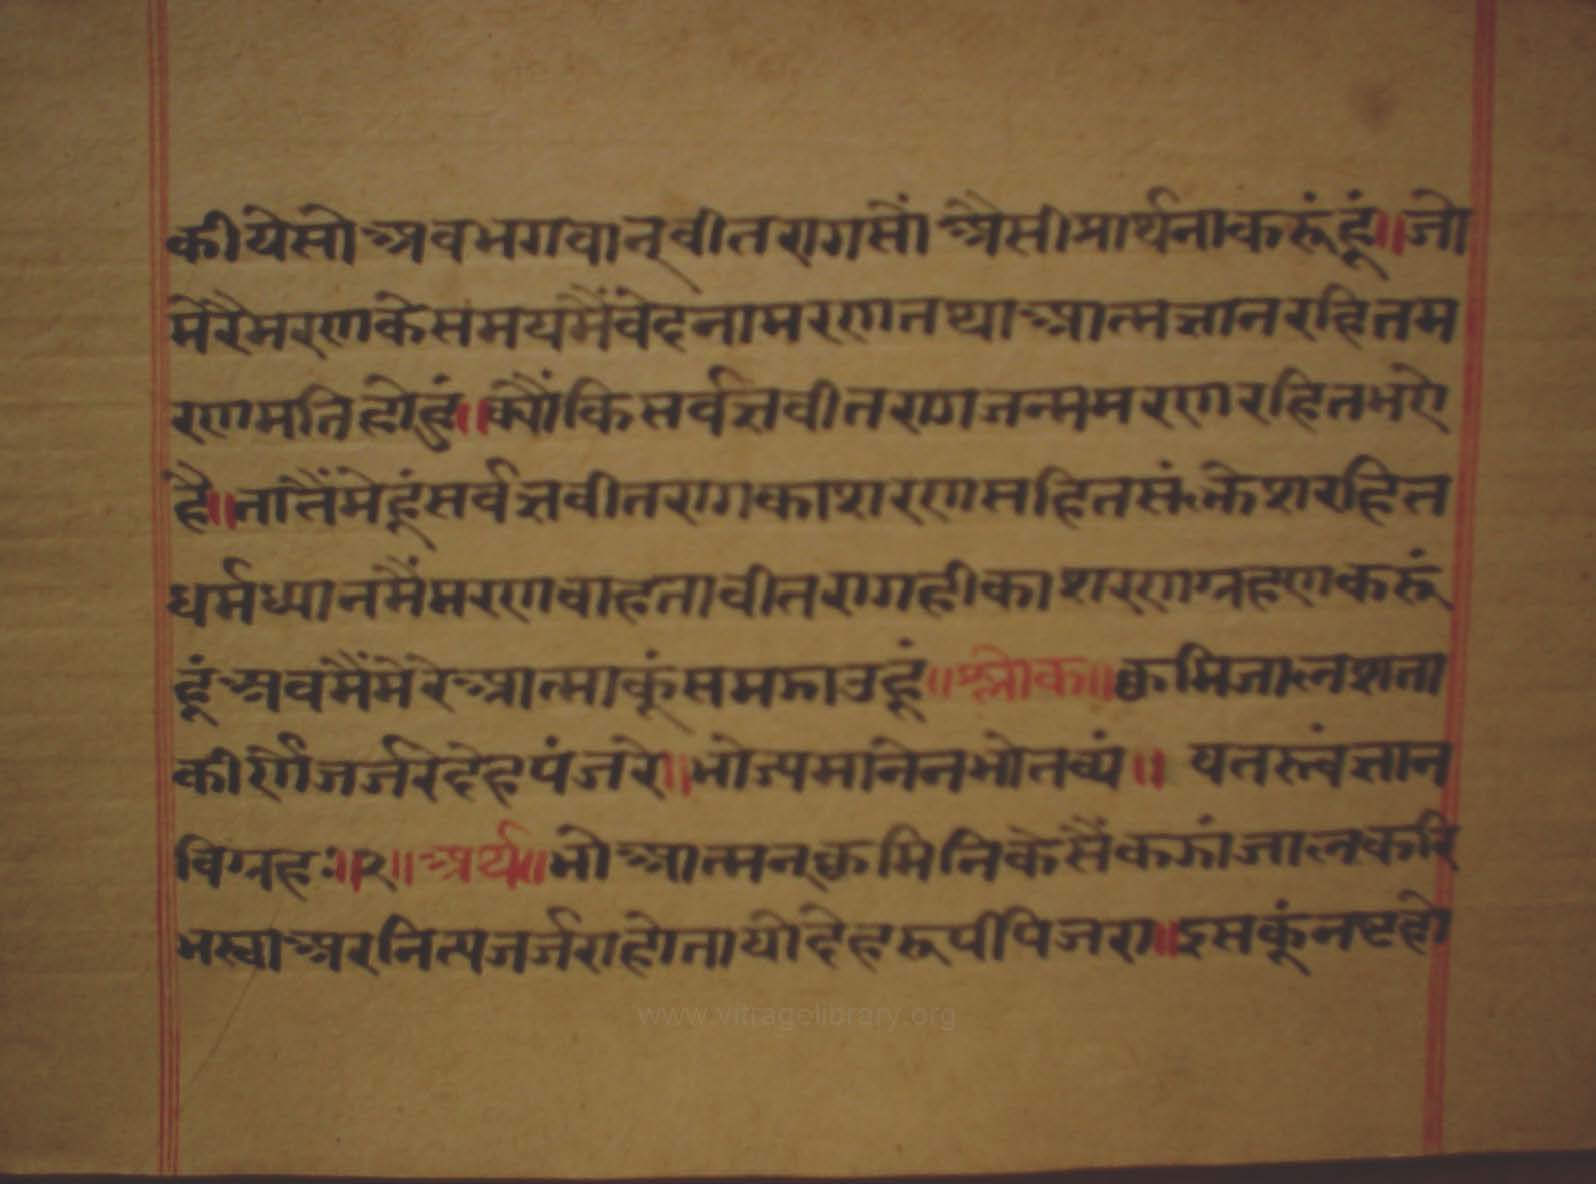 कीयेसो अवभगवान्वीतरागसौं अैसीप्रार्थनाकरूंहूं॥जो
मेरैमरणकेसमयमैंवेदनामरणतथाआत्मज्ञानरहितम
रणमतिहोहुं॥क्यौंकिसर्वज्ञवीतरागजन्ममरणरहितभऐ
है॥तातैंमेहूंसर्वज्ञवीतरागकाशरणसहितसंक्लेशरहित
धर्मध्यानमैंमरणवाहतावीतरागहीकाशरणग्रहणकरूं
हूंअवमैंमेरेआत्माकूंसमझाउहूं॥श्लोक॥कृमिजालशता
कीर्णैजर्जरेदेहपंजरे॥भोज्यमानेनभोतव्यं॥ यतस्त्वंज्ञान
विग्रहः॥२॥अर्थ॥भोआत्मन्कृमिनिकेसैंकडांजालकरि
भस्याअरनित्यजर्जराहोतायोदेहरूपीपिंजरा॥इसकूंनष्टहो
www.vitragelibrary.org